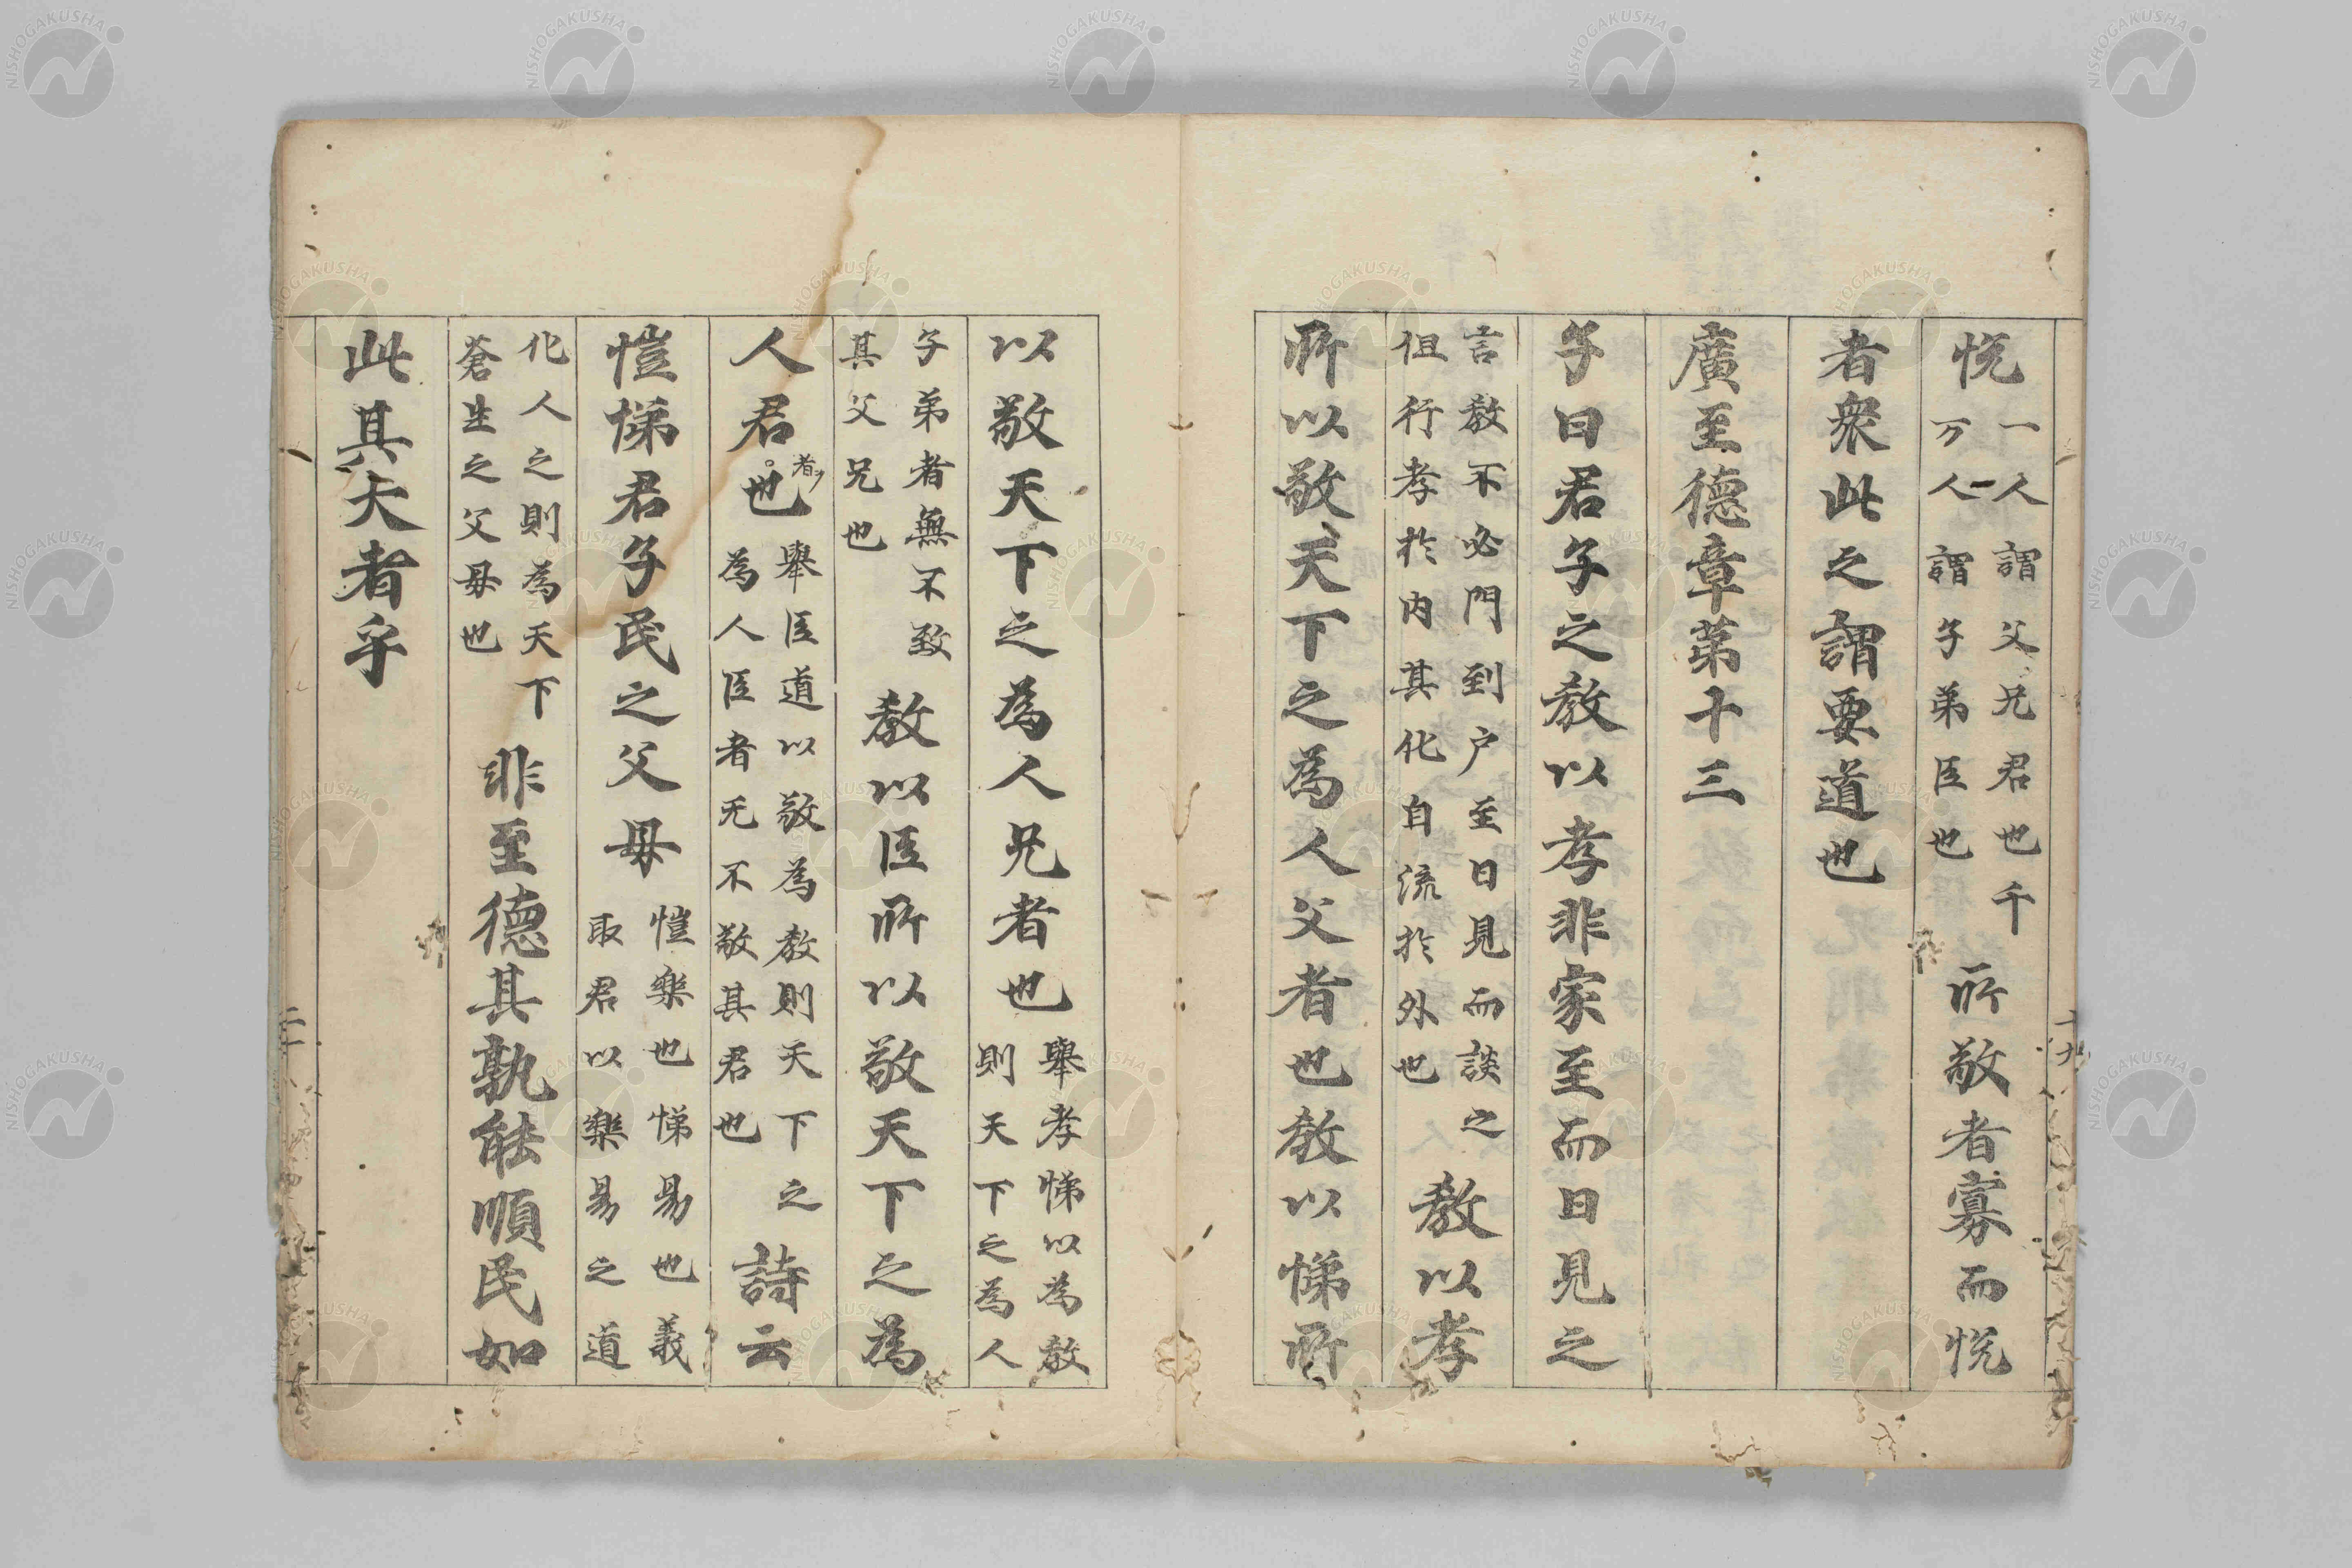 悦 一人謂父兄君也千
万人謂子弟臣也 所敬者寡而悦
者衆此之謂要道也
廣至德章第十三
子曰君子之教以孝非家至而日見之
言教不必門到戸至日見而談之
但行孝於内其化自流於外也 教以孝
所以敬天下之為人父者也教以悌所
以敬天下之為人兄者也 舉孝悌以為教
則天下之為人
子弟者無不致
其父兄也 教以臣所以敬天下之為
人君也 者
舉臣道以敬為教則天下之
為人臣者无不敬其君也 詩云
愷悌君子民之父母 愷樂也悌易也義
取君以樂易之道
化人之則為天下
蒼生之父母也 非至德其孰能順民如
此其大者乎
十九
二
NISHOGAKUSHA